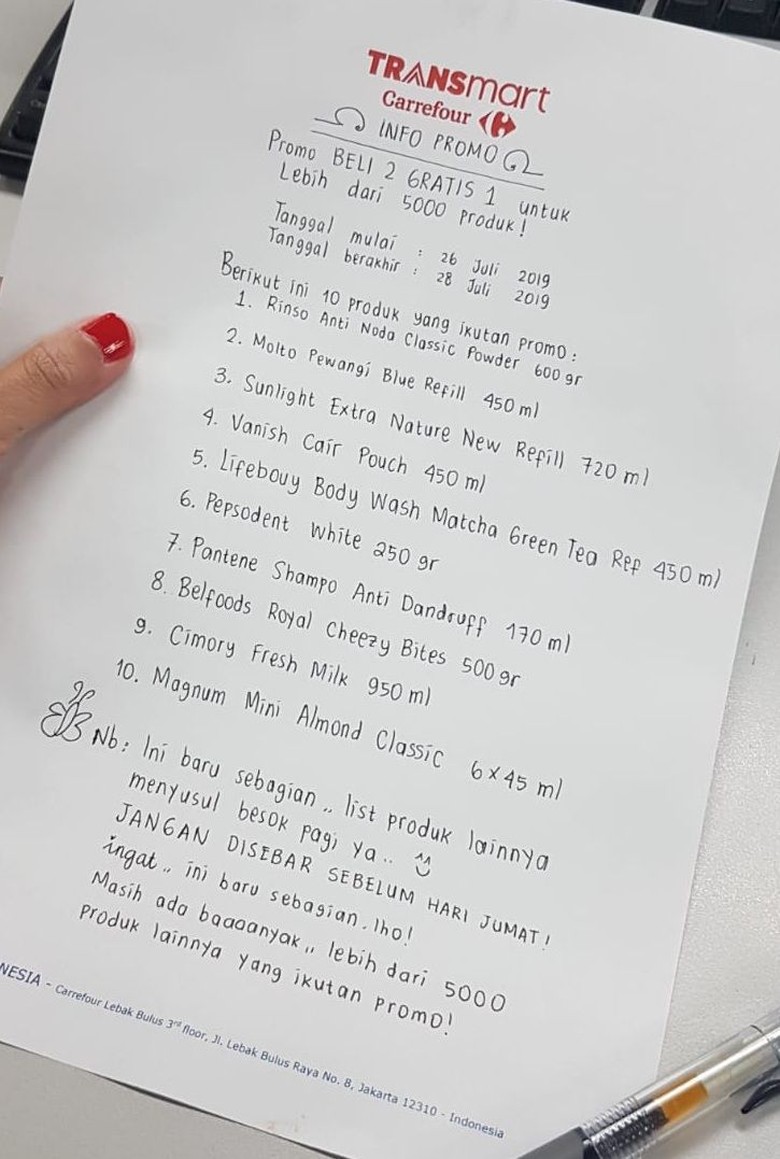 TRANSmart
Carrefour
INFO PROMO
Promo BELI 2 GRATIS 1 untuk
Lebih dari 5000 produk!
Tanggal mulai : 26 Juli 2019
Tanggal berakhir : 28 Juli 2019
Berikut ini 10 produk yang ikutan promo :
1. Rinso Anti Noda Classic Powder 600 gr
2. Molto Pewangi Blue Refill 450 ml
3. Sunlight Extra Nature New Refill 720 ml
4. Vanish Cair Pouch 450 ml
5. Lifebouy Body Wash Matcha Green Tea Ref 450 ml
6. Pepsodent White 250 gr
7. Pantene Shampo Anti Dandruff 170 ml
8. Belfoods Royal Cheezy Bites 500 gr
9. Cimory Fresh Milk 950 ml
10. Magnum Mini Almond Classic 6 x 45 ml
Nb : Ini baru sebagian .. list produk lainnya
menyusul besok pagi ya ..
JANGAN DISEBAR SEBELUM HARI JUMAT!
ingat .. ini baru sebagian. lho!
Masih ada baaaanyak,, lebih dari 5000
produk lainnya yang ikutan promo!
NESIA - Carrefour Lebak Bulus 3rd floor, Jl. Lebak Bulus Raya No. 8, Jakarta 12310 - Indonesia